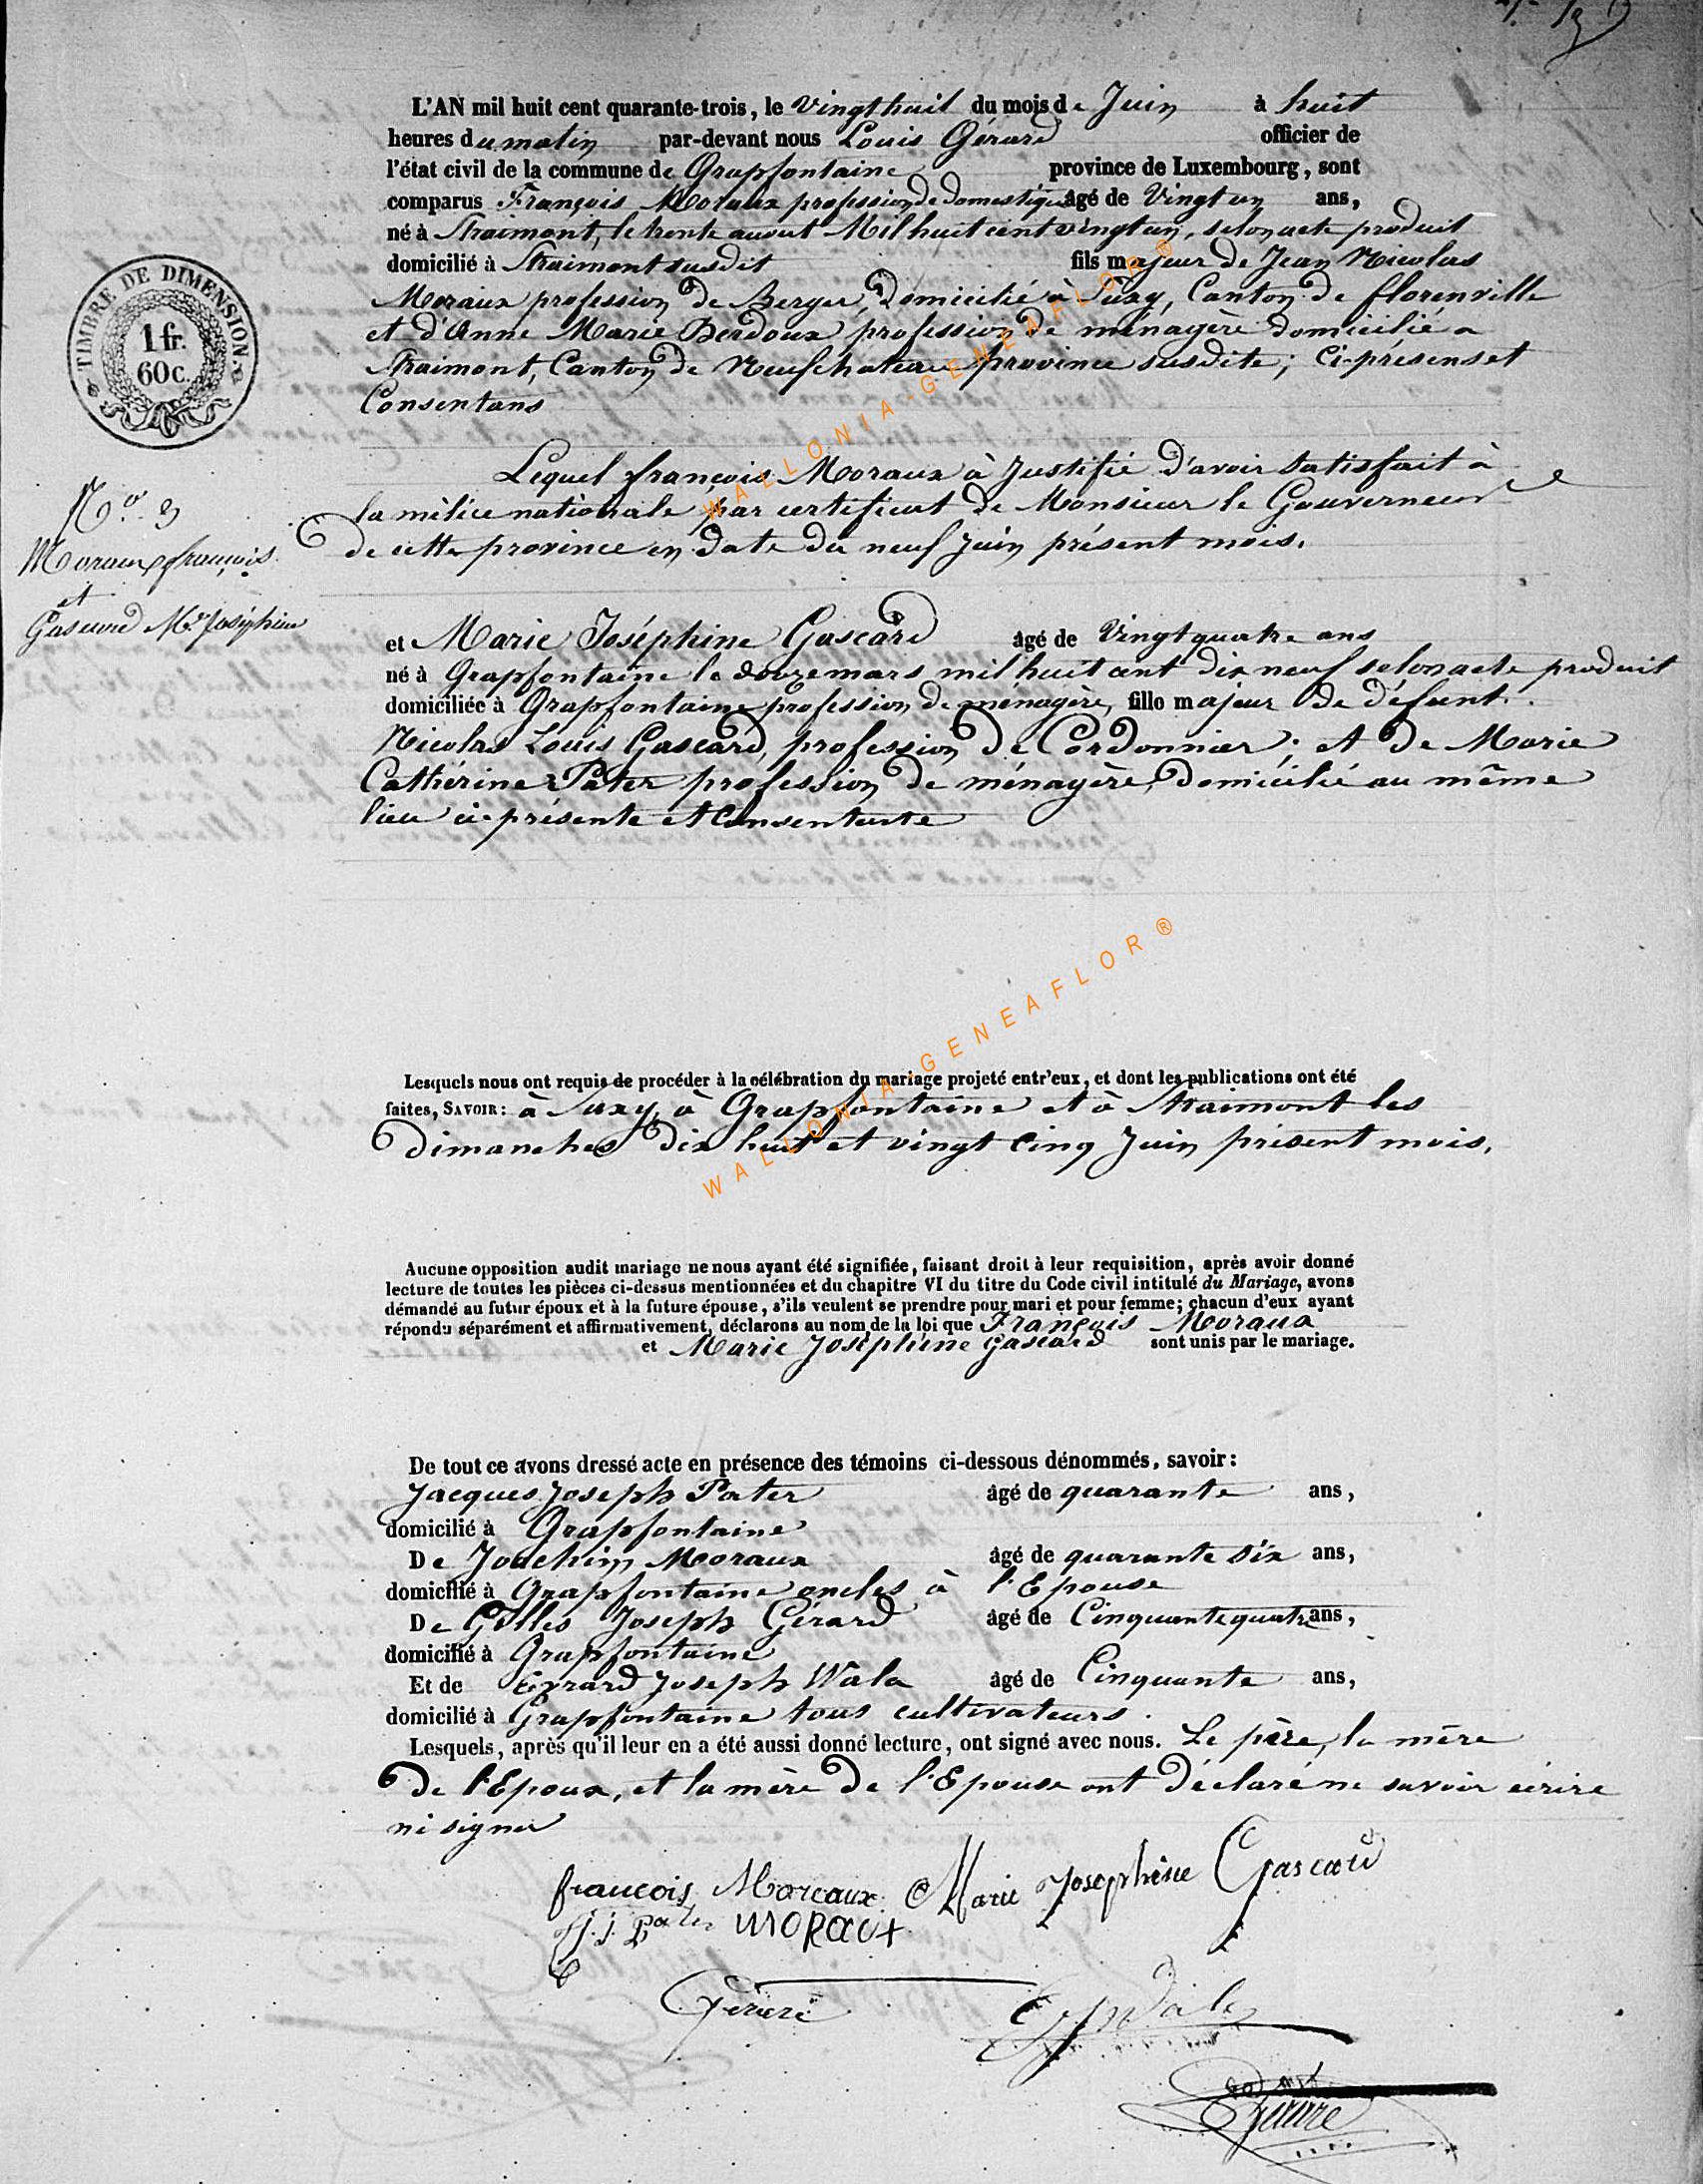 L'AN mil huit cent quarante-trois, le Vingt huit du mois de Juin à huit
heures du matin par-devant nous Louis Gérard officier de
l'état civil de la commune de Grapfontaine province de Luxembourg, sont
comparus François Moraux profession de domestique âgé de Vingt un ans,
né à Straimont, le trente auout Mil huit cent vingt un, selon acte produit
domicilié à Straimont susdit fils majeur de Jean Nicolas
Moraux profession de Berger, domicilié à Suxy, Canton de florenville
et d'Anne Marie Derdoux profession de ménagère domicilié a
Straimont, Canton de Neufchateau province susdite; Ci-présens et
Consentans
TIMBRE DE DIMENSION.
1 fr.
60 c.
Lequel françois Moraux à Justifié d'avoir Satisfait à
la milice nationale par certificat de Monsieur le Gouverneur
de cette province en date du neuf Juin présent mois.
N.º 3
Moraux françois
et
Gascard M.ie Joséphine
et Marie Joséphine Gascard âgé de Vingt quatre ans
né à Grapfontaine le douze mars mil huit cent dix neuf selon acte produit
domiciliée à Grapfontaine profession de ménagère, fille majeur de défunt
Nicolas Louis Gascard, profession de Cordonnier; et de Marie
Cathérine Pater profession de ménagère, domicilié au même
lieu ci-présente et Consentante
Lesquels nous ont requis de procéder à la célébration du mariage projeté entr'eux, et dont les publications ont été
faites, SAVOIR: à Suxy, à Grapfontaine et à Straimont les
dimanches dix huit et vingt cinq Juin présent mois.
Aucune opposition audit mariage ne nous ayant été signifiée, faisant droit à leur requisition, après avoir donné
lecture de toutes les pièces ci-dessus mentionnées et du chapitre VI du titre du Code civil intitulé du Mariage, avons
démandé au futur époux et à la future épouse, s'ils veulent se prendre pour mari et pour femme; chacun d'eux ayant
répondu séparément et affirmativement, déclarons au nom de la loi que François Moraux
et Marie Joséphine Gascard sont unis par le mariage.
De tout ce avons dressé acte en présence des témoins ci-dessous dénommés, savoir:
Jacques Joseph Pater âgé de quarante ans,
domicilié à Grapfontaine
De Joachim Moraux âgé de quarante six ans,
domicilié à Grapfontaine oncles à l'Epouse
De Gilles Joseph Gérard âgé de Cinquante quatre ans,
domicilié à Grapfontaine
Et de Evrard Joseph Wala âgé de Cinquante ans,
domicilié à Grapfontaine tous cultivateurs.
Lesquels, après qu'il leur en a été aussi donné lecture, ont signé avec nous. Le père, la mère
de l'Epoux, et la mère de l'Epouse ont déclaré ne savoir écrire
ni signer
francois Moreaux Marie Josephine Gascard
J. J. Pater MORaux
WALLONIA-GENEAFLOR®
WALLONIA-GENEAFLOR®